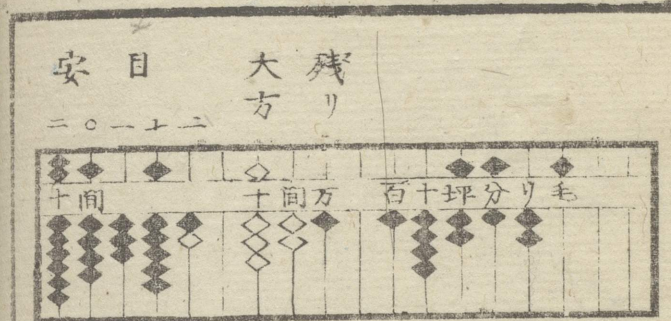 残リ
大方
目安
二〇一十二
十間 十間万 百十坪分リ毛